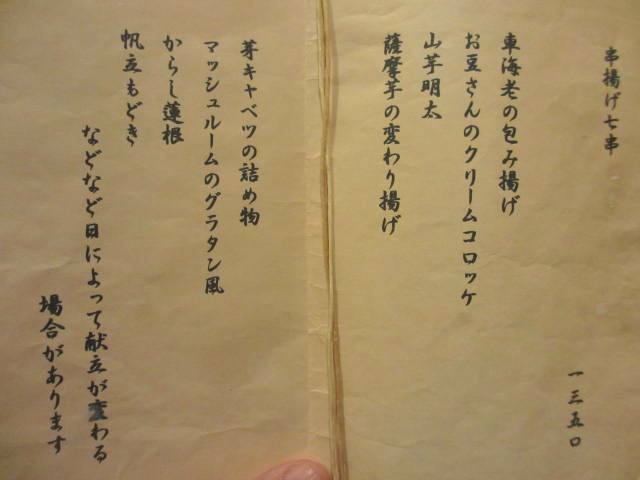 串揚げ七串
一三五〇
車海老の包み揚げ
お豆さんのクリームコロッケ
山芋明太
薩摩芋の変わり揚げ
芽キャベツの詰め物
マッシュルームのグラタン風
からし蓮根
帆立もどき
などなど日によって献立が変わる
場合があります